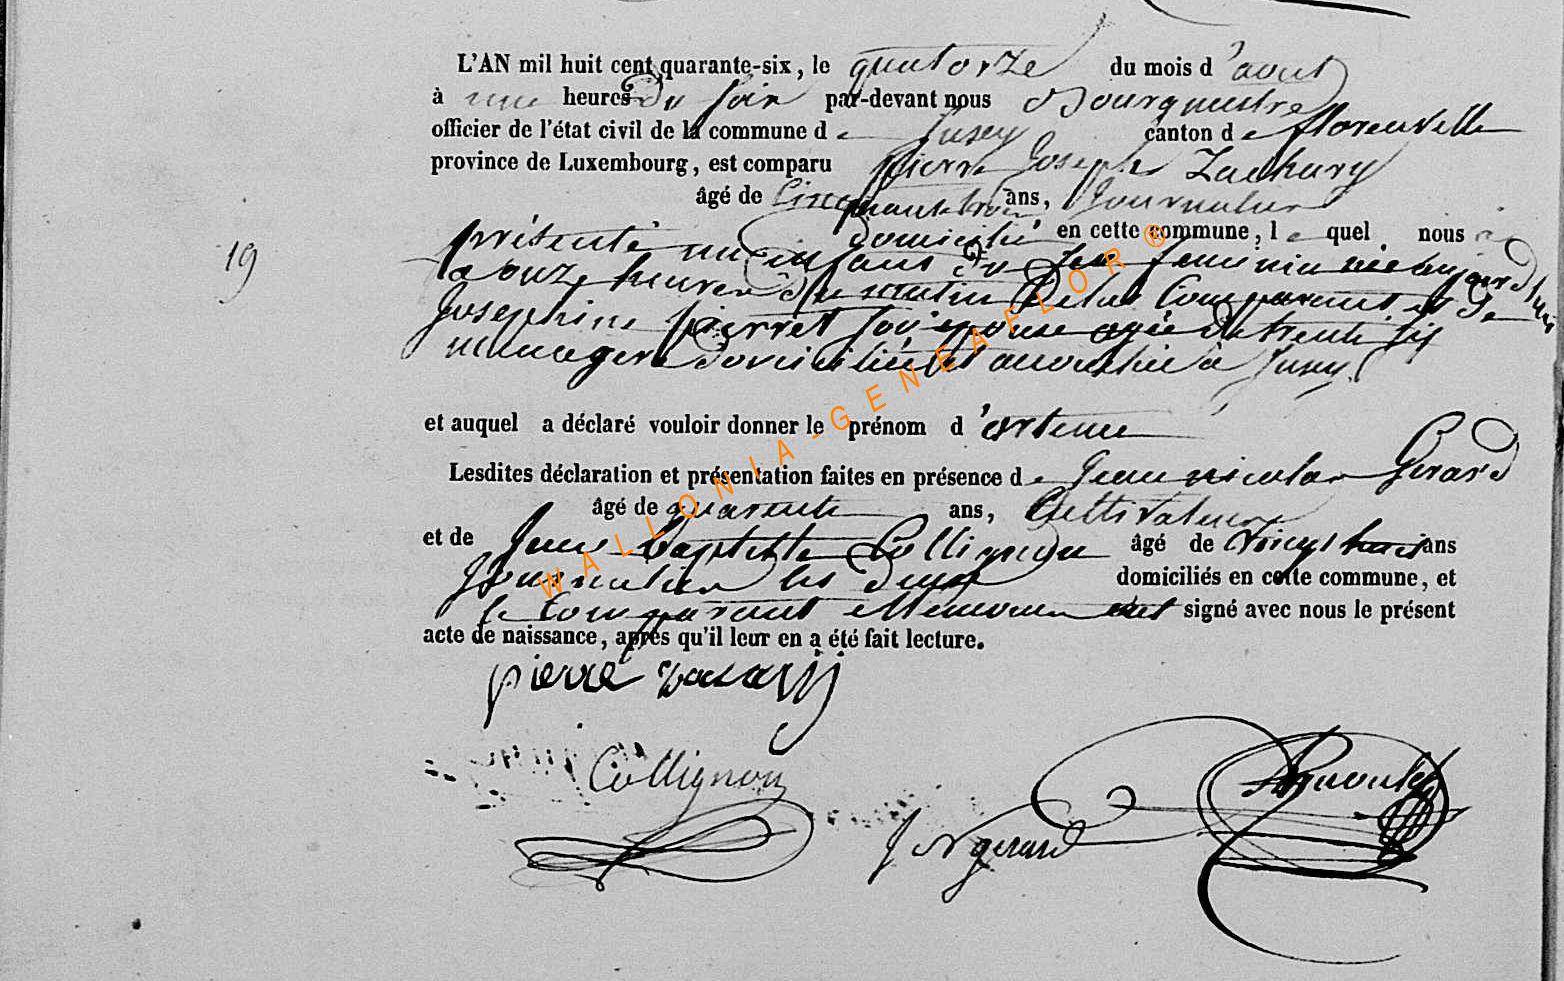 L'AN mil huit cent quarante-six, le quatorze du mois d'aout
à une heures du soir par-devant nous Bourguestre
officier de l'état civil de la commune de Jusey canton de florenville
province de Luxembourg, est comparu Pierre Joseph Zachary
âgé de Cinquante trois ans, Journalier
domicilié en cette commune, le quel nous a
19
présenté un enfant du sex feminin né aujourd'hui
à onze heures du matin De lui Comparant et De
Josephine pierret son epouse agée de trente six
menagere domiciliée et accouchée à Jusey
et auquel a déclaré vouloir donner le prénom d'ortence
Lesdites déclaration et présentation faites en présence de Jean nicolas Gerard
âgé de quarente ans, Cultivateur
et de Jean Baptiste Collignon âgé de vingt huit ans
Journalier les deux domiciliés en cette commune, et
le Comparant et temoin ont signé avec nous le présent
acte de naissance, après qu'il leur en a été fait lecture.
pierre zacarij
Collignon
J N gerard
WALLONIA-GENEAFLOR®